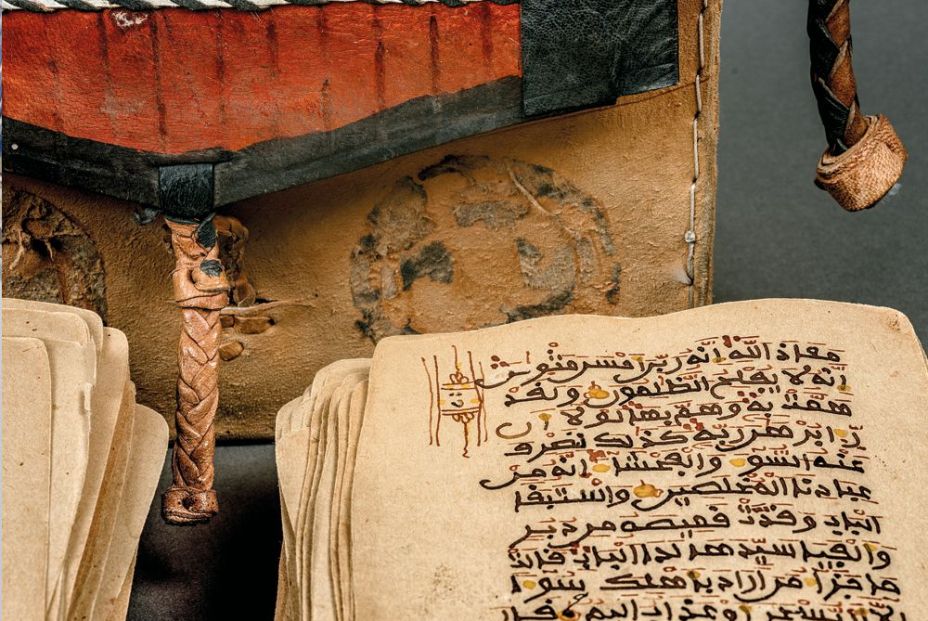 معاذ الله إنه ربي أحسن مثواي
إنه لا يفلح الظلمون ولقد
همت به وهم بها لولا أن
رءا برهن ربه كذلك لنصرف
عنه السوء والفحشاء إنه من
عبادنا المخلصين واستبقا
الباب وقدت قميصه من دبر
وألفيا سيدها لدا الباب قالت
ما جزاء من أراد بأهلك سوءا
إلا أن يسجن أو عذاب أليم قال